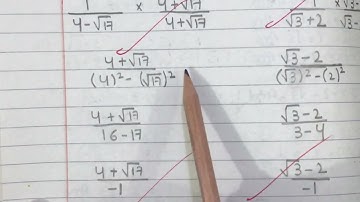 1/(4-√17) × (4+√17)/(4+√17)
1/(√3+2) × √3-
(4+√17)/((4)²-(√17)²)
(√3-2)/((√3)²-(2)²)
(4+√17)/(16-17)
(√3-2)/(3-4)
(4+√17)/-1
(√3-2)/-1